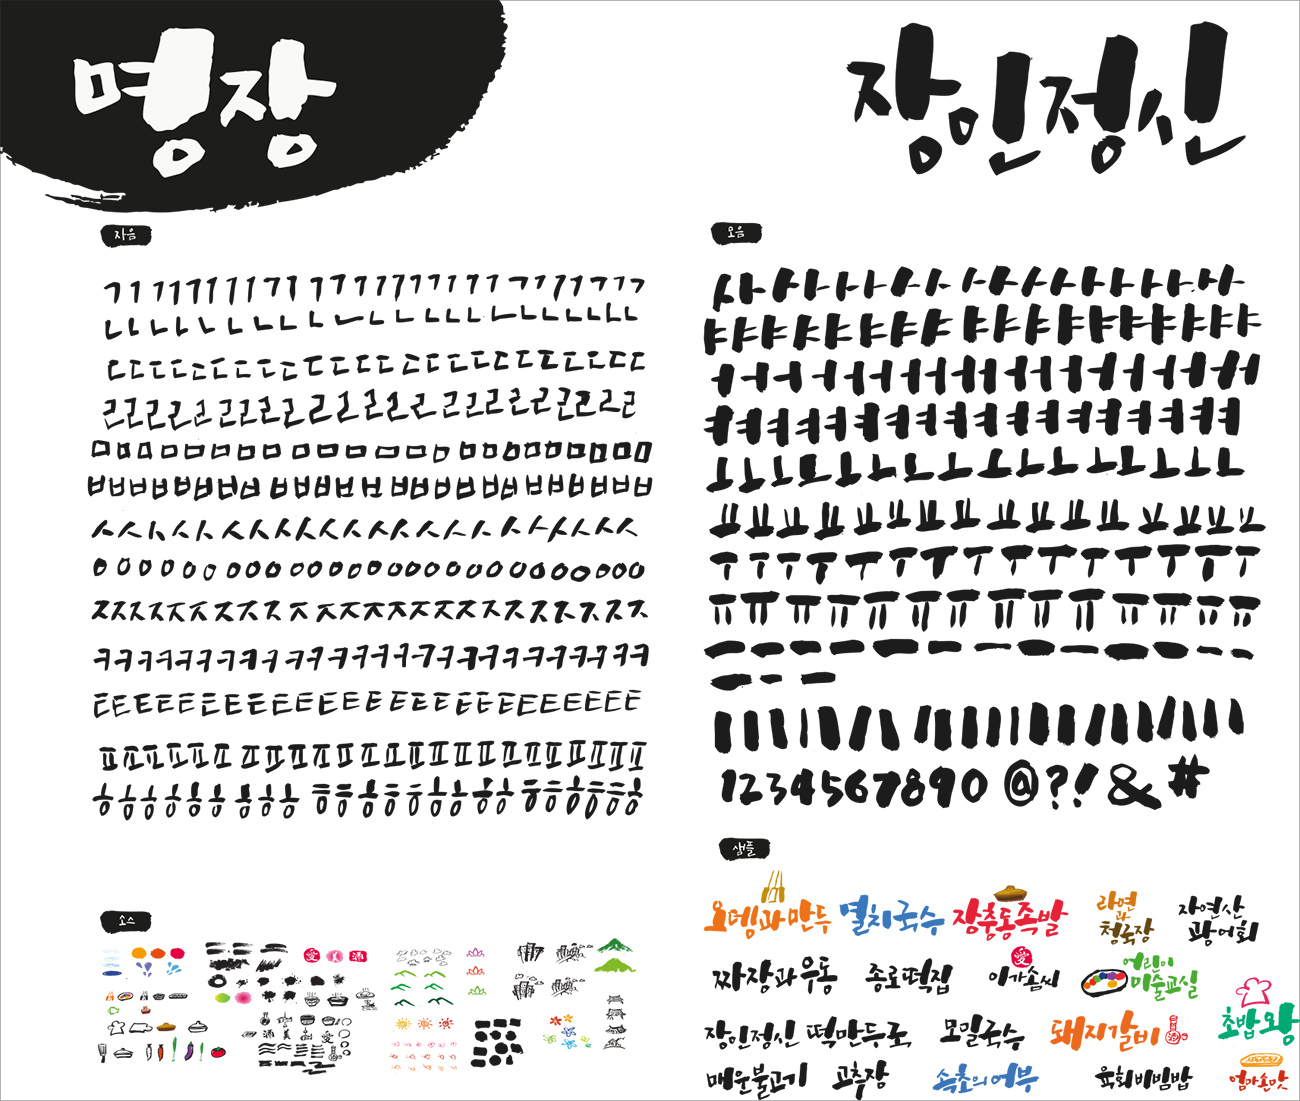 명장
장인정신
자음
ㄱㄱㄱㄱㄱㄱㄱㄱㄱㄱㄱㄱㄱㄱㄱㄱㄱㄱㄱㄱㄱㄱㄱㄱ
ㄴㄴㄴㄴㄴㄴㄴㄴㄴㄴㄴㄴㄴㄴㄴㄴㄴㄴㄴㄴㄴㄴㄴㄴ
ㄷㄷㄷㄷㄷㄷㄷㄷㄷㄷㄷㄷㄷㄷㄷㄷㄷㄷㄷㄷㄷㄷㄷㄷ
ㄹㄹㄹㄹㄹㄹㄹㄹㄹㄹㄹㄹㄹㄹㄹㄹㄹㄹㄹㄹㄹㄹㄹㄹ
ㅁㅁㅁㅁㅁㅁㅁㅁㅁㅁㅁㅁㅁㅁㅁㅁㅁㅁㅁㅁㅁㅁㅁㅁ
ㅂㅂㅂㅂㅂㅂㅂㅂㅂㅂㅂㅂㅂㅂㅂㅂㅂㅂㅂㅂㅂㅂㅂㅂ
ㅅㅅㅅㅅㅅㅅㅅㅅㅅㅅㅅㅅㅅㅅㅅㅅㅅㅅㅅㅅㅅ
ㅇㅇㅇㅇㅇㅇㅇㅇㅇㅇㅇㅇㅇㅇㅇㅇㅇㅇㅇㅇㅇㅇㅇㅇㅇ
ㅈㅈㅈㅈㅈㅈㅈㅈㅈㅈㅈㅈㅈㅈㅈㅈㅈㅈㅈㅈㅈㅈㅈ
ㅋㅋㅋㅋㅋㅋㅋㅋㅋㅋㅋㅋㅋㅋㅋㅋㅋㅋㅋㅋㅋㅋㅋㅋ
ㅌㅌㅌㅌㅌㅌㅌㅌㅌㅌㅌㅌㅌㅌㅌㅌㅌㅌㅌㅌㅌㅌㅌㅌ
ㅍㅍㅍㅍㅍㅍㅍㅍㅍㅍㅍㅍㅍㅍㅍㅍㅍㅍㅍㅍㅍㅍㅍ
ㅎㅎㅎㅎㅎㅎㅎㅎㅎㅎㅎㅎㅎㅎㅎㅎㅎㅎㅎㅎㅎㅎㅎ
모음
ㅏㅏㅏㅏㅏㅏㅏㅏㅏㅏㅏㅏㅏㅏㅏㅏㅏ
ㅑㅑㅑㅑㅑㅑㅑㅑㅑㅑㅑㅑㅑㅑㅑㅑㅑㅑ
ㅓㅓㅓㅓㅓㅓㅓㅓㅓㅓㅓㅓㅓㅓㅓㅓ
ㅕㅕㅕㅕㅕㅕㅕㅕㅕㅕㅕㅕㅕㅕㅕㅕ
ㅗㅗㅗㅗㅗㅗㅗㅗㅗㅗㅗㅗㅗㅗㅗㅗ
ㅛㅛㅛㅛㅛㅛㅛㅛㅛㅛㅛㅛㅛㅛㅛㅛ
ㅜㅜㅜㅜㅜㅜㅜㅜㅜㅜㅜㅜㅜㅜ
ㅠㅠㅠㅠㅠㅠㅠㅠㅠㅠㅠㅠㅠㅠ
ㅡㅡㅡㅡㅡㅡㅡㅡㅡㅡㅡㅡㅡ
ㅡㅡㅡ
ㅣㅣㅣㅣㅣㅣㅣㅣㅣㅣㅣㅣㅣㅣㅣㅣㅣㅣㅣㅣㅣ
1234567890 @?!&#
샘플
오뎅과만두 멸치국수 장충동족발 라면과청국장 자연산광어회
짜장과우동 종로떡집 이가솜씨 어린이미술교실
장인정신 떡만두국 모밀국수 돼지갈비 초밥왕
매운불고기 고추장 속초의어부 육회비빔밥 엄마손맛
소스
愛 酒